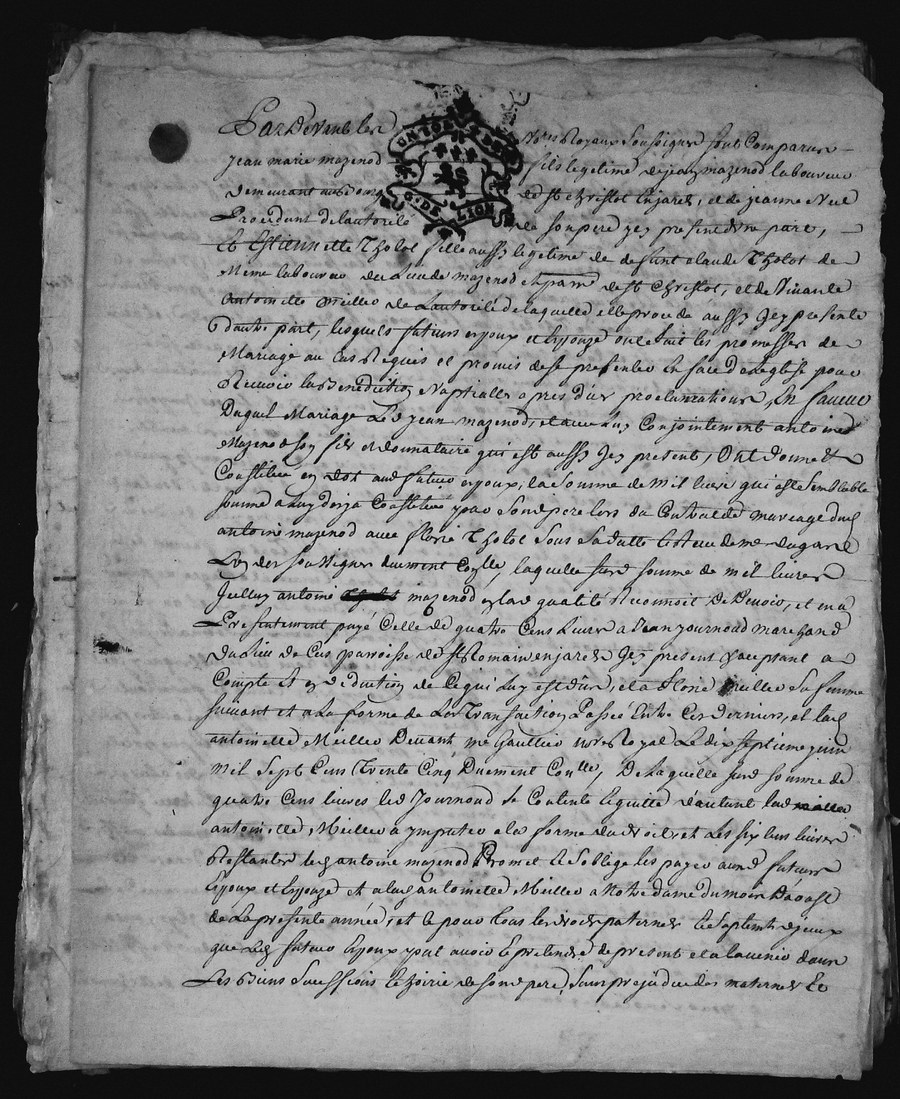 Pardevant les nores Royaux Soussignes sont Comparus
jean marie mazenod fils legitime de jean mazenod laboureur
demeurant au bourg de st christot en jares, et de jeanne
Procedant de lautorité de son pere jcy present dvne part,
Et Estiennette Tholot fille aussy legitime de defunt claude Tholot de
Meme laboureur du Lieu de mazenod parr de st Christot, et de vivante
Antoinette Meiller de Lautorité de laquelle elle procede aussy jcy presente
dautre part, lesquels futurs epoux et epouze ont fait les promesses de
Mariage au Cas Requis et promis de se presenter En face de leglise pour
Recevoir la Benediction Nuptialle apres dues proclamations, En faveur
Duquel Mariage Led jean mazenod, et avec luy Conjointement antoine
Mazenod son fils et donnataire qui est aussy jcy present, Ont donné et
Constitué en dot aud futur epoux, la Somme de mil livres qui est Semblable
somme a luy deja Constituée par Son dpere lors du Contrat de mariage dud
antoine mazenod avec florie Tholot Sous Sa datte
Lvn des soussignes duement Conlle, laquelle susd somme de mil livres
jcelluy antoine mazenod en lad qualité Reconnoit Devoir, et en a
Presentement payé Celle de quatre Cens Livres a Jean journoud marchand
du Lieu de Cus parroisse de st Romain en jares jcy present acceptant a
Compte et en deduction de Ce qui Luy est dû, et a florie Meiller Sa femme
suivant et a La forme de La Transaction Passée Entre Ces derniers, et lad
antoinette Meiller Devant me Gaultier nore Royal Le dix septieme juin
mil Sept Cens Trente Cinq Duement Conlle, De laquelle susd somme de
quatre Cens livres led Journoud Se Contente En quitte dautant lad
antoinette Meiller a jmputer a la forme du droit, et Les six Cens livres
Restantes led antoine mazenod Promet Et S oblige les payer auxd futurs
Epoux et Epouze et a lad antoinette Meiller a Notre dame du mois Daoust
de La presente année, et ce pour tous les droits paternels
que Led futur Epoux peut avoir Et pretendre de present et a lavenir dans
Les Biens Successions Et hoirie de son dpere, Sans prejudice des maternels Et